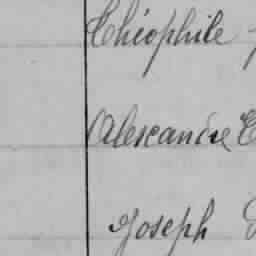 Théophile
Alexandre
Joseph